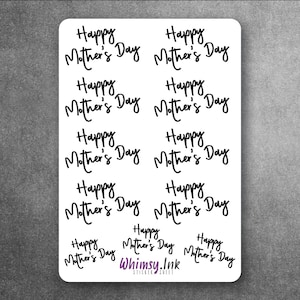 Happy Happy
Mother's Day Mother's Day
Happy Happy
Mother's Day Mother's Day
Happy Happy
Mother's Day Mother's Day
Happy Happy
Mother's Day Mother's Day
Happy Happy Happy
Mother's Day Mother's Day Mother's Day
Whimsy.Ink
STICKER SHEET